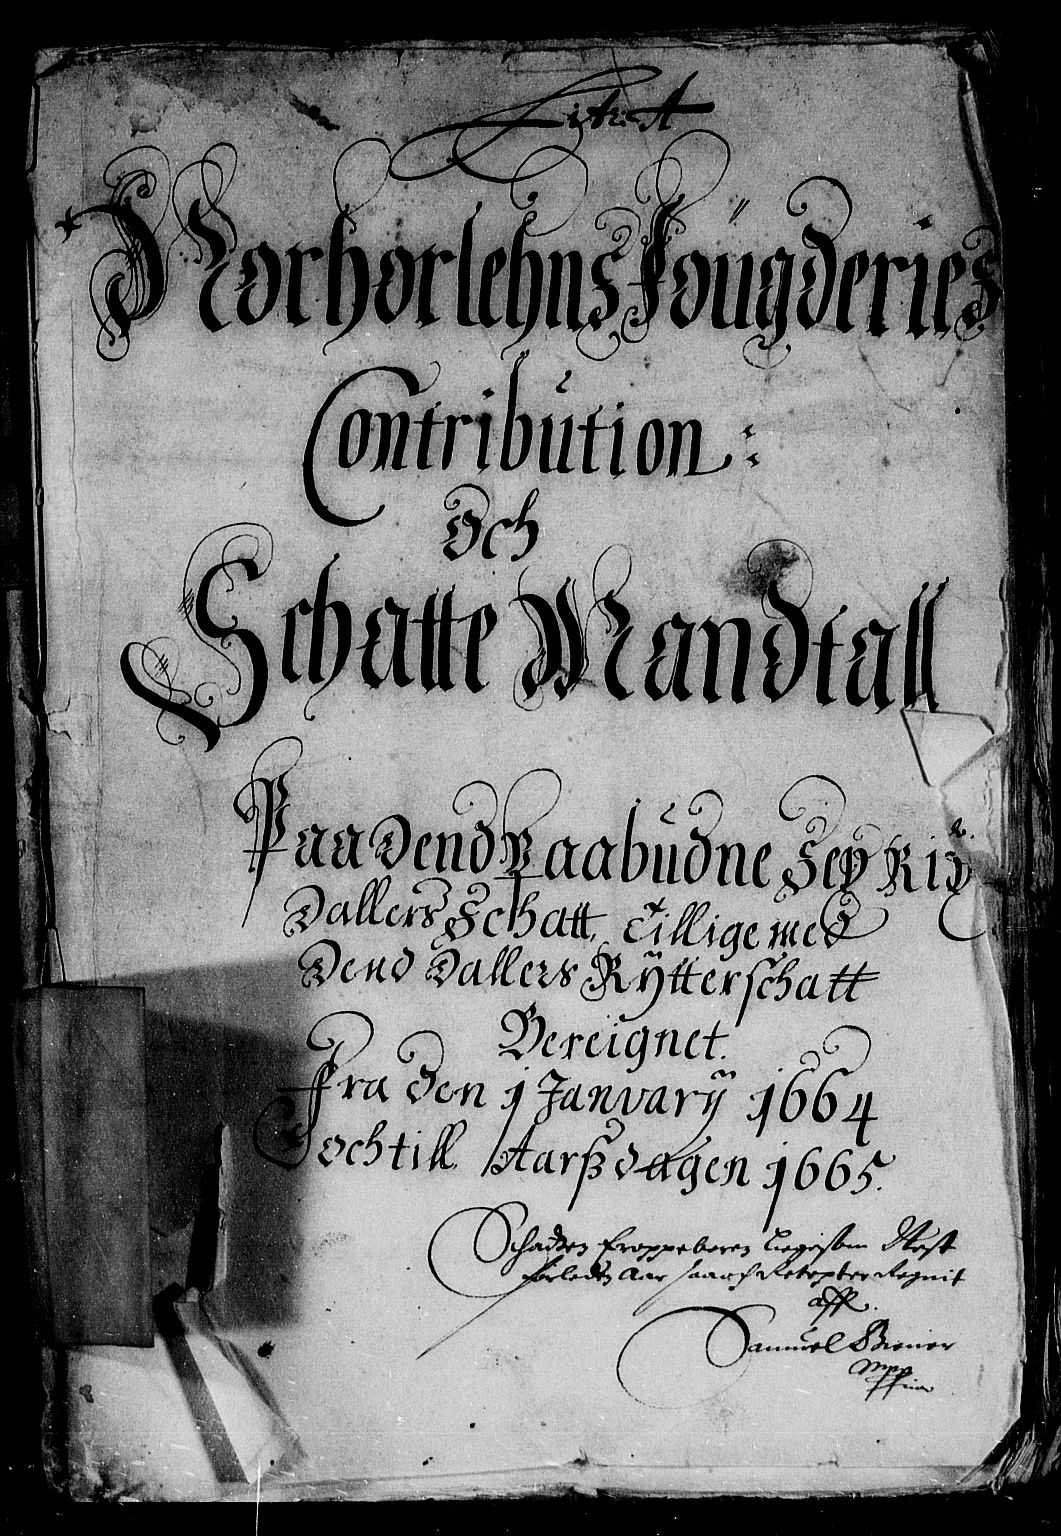 Litr: A
Norhorlehns Foügderies
Contribution:
Och
Schatte Mandtall
Paa Dend Paabüdne Sex Rix
Dallers Schatt, Tillige med
Dend Dallers Rÿtterschatt
Bereignet.
Fra den 1 Januarÿ 1664
och till Aarßdagen 1665.
Schatten
forleden Aar
aff
Samuel